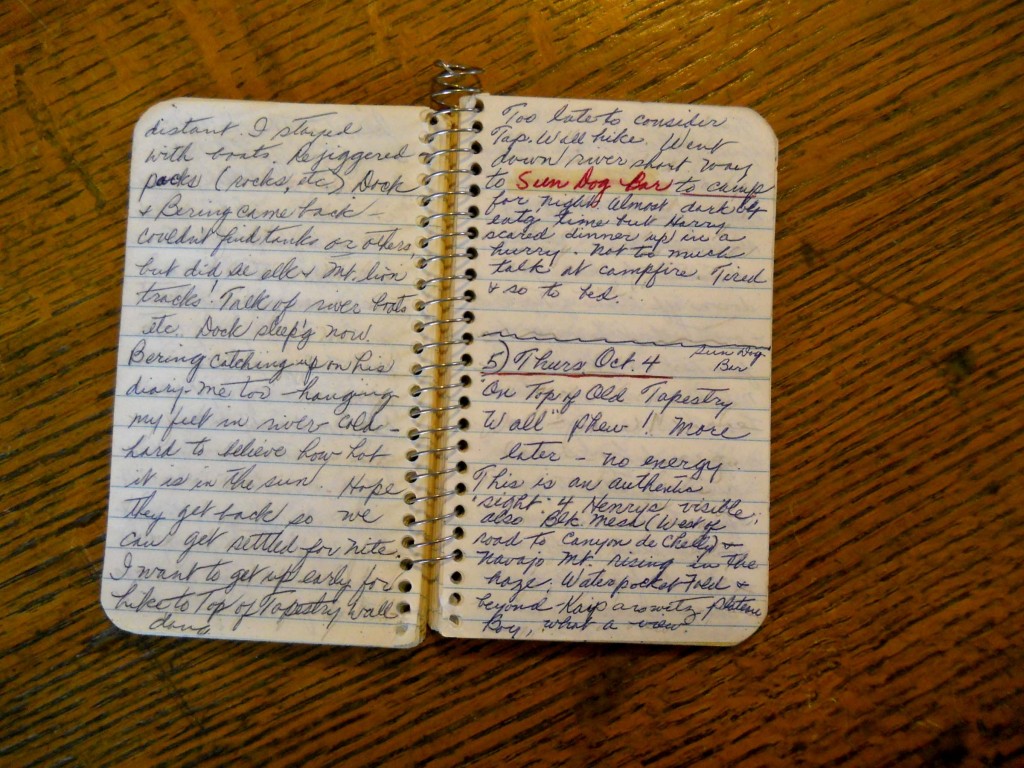 distant. I stayed
with boats. Rejiggered
packs (rocks, etc.) Dock
& Bering came back –
couldn't find tanks or others,
but did see elk & Mt. lion
tracks. Talk of river boats
etc. Dock sleep'g now.
Bering catching up on his
diary. Me too – hanging
my feet in river cold –
hard to believe how hot
it is in the sun. Hope
they get back so we
can get settled for nite.
I want to get up early for
hike to Top of Tapestry Wall
Too late to consider
Tap. Wall hike. Went
down river short way
to Sun Dog Bar to camp
for night. Almost dark by
eatg time but Harry
scared dinner up in a
hurry. Not too much
talk at campfire. Tired
& so to bed.
5) Thurs Oct. 4
Sun Dog
Bar
"On Top of Old Tapestry
Wall" Phew! More
later – no energy.
This is an authentic
'sight'. 4 Henrys visible;
also Blk. Mesa (West of
road to Canyon de Chelly) &
Navajo Mt. rising in the
haze. Waterpocket Fold &
beyond – Kaiparowitz plateau
Boy, what a view.